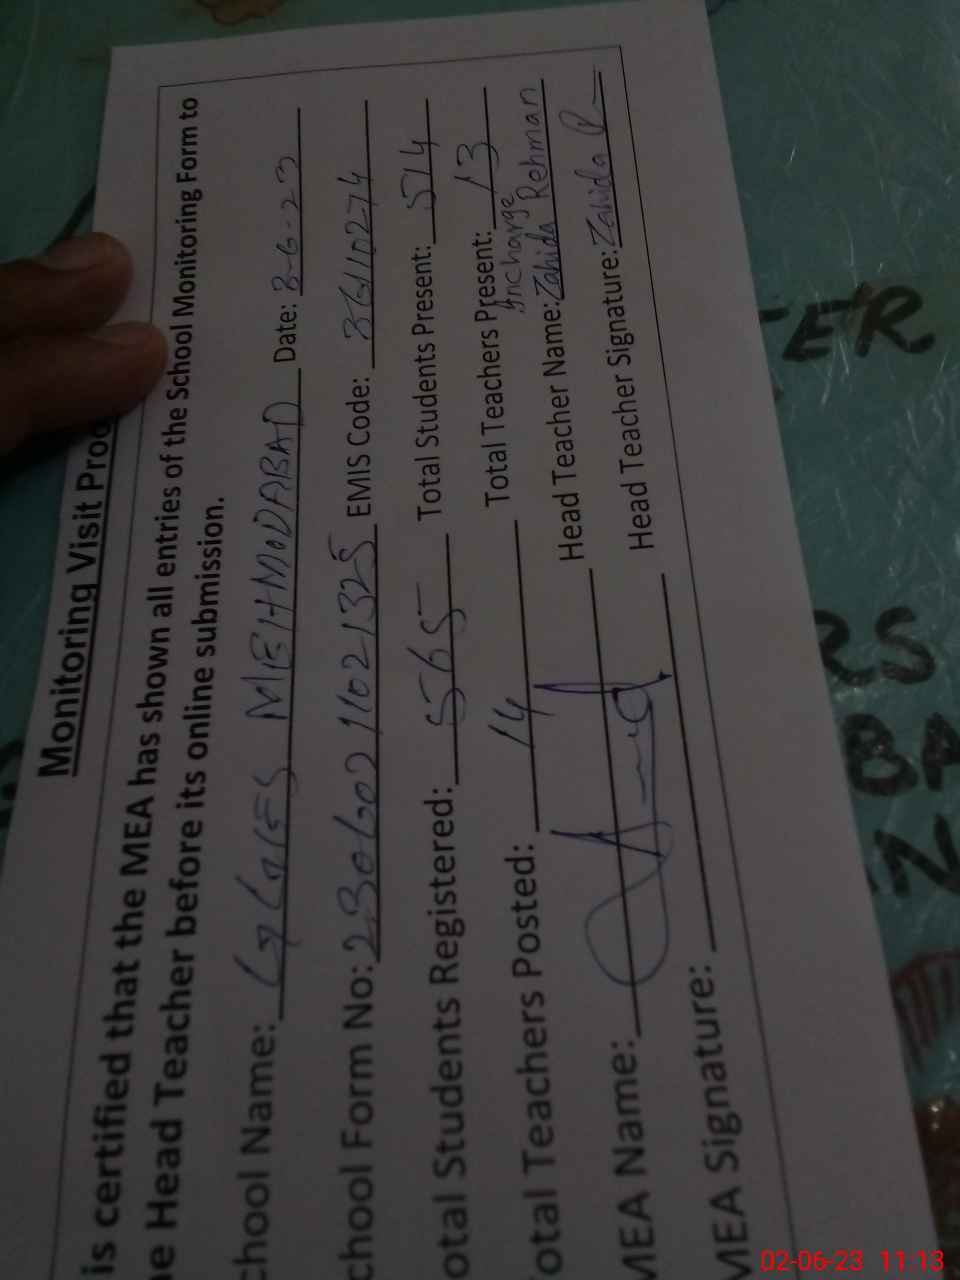 Monitoring Visit Proo
is certified that the MEA has shown all entries of the School Monitoring Form to
e Head Teacher before its online submission.
chool Name: GGHES MEHMODABAD Date: 3-6-23
chool Form No: 23060021021325 EMIS Code: 36110274
otal Students Registered: 565 Total Students Present: 514
otal Teachers Posted: 14 Total Teachers Present: 13
Incharge
MEA Name: Head Teacher Name: Zahida Rehman
MEA Signature: Head Teacher Signature: Zahida R
ER
RS
BA
N
02-06-23 11:13